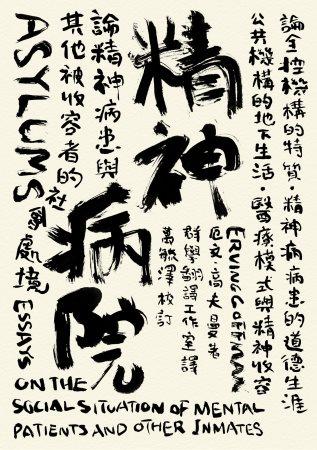 精神
病院
論精神病患與
其他被收容者的
社會處境
ASYLUMS
ESSAYS
ON THE
SOCIAL SITUATION OF MENTAL
PATIENTS AND OTHER INMATES
論全控機構的特質・精神病病患的道德生涯
公共機構的地下生活・醫療模式與精神收容
ERVING GOFFMAN
厄文・高夫曼著
群學翻譯工作室譯
萬毓澤校訂